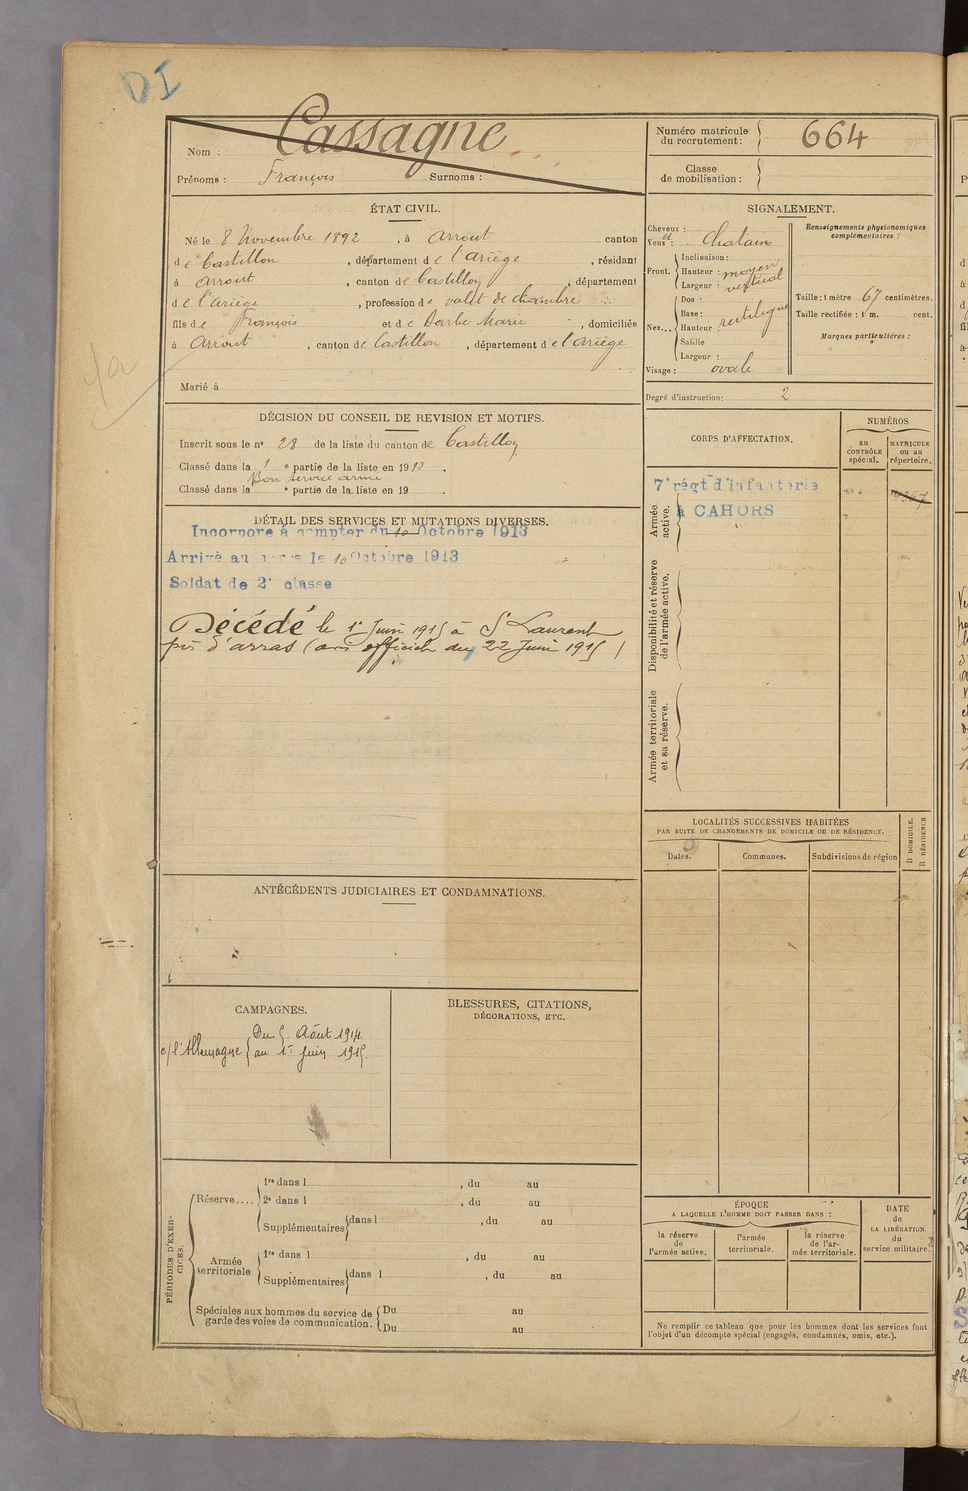 DI
Nom : Cassagne
Prénoms : François Surnoms :
Numéro matricule du recrutement : 664
Classe de mobilisation :
ÉTAT CIVIL.
Né le 8 Novembre 1892, à Arrout canton
de Castillon, département de l'Ariège, résidant
à Arrout, canton de Castillon, département
de l'Ariège, profession de valet de chambre
fils de François et de Darbe Marie, domiciliés
à Arrout, canton de Castillon, département de l'Ariège
Marié à
SIGNALEMENT.
Cheveux :
et
Yeux : Chatain
Front. Inclinaison :
Hauteur : moyen
Largeur : vertical
Nez... Dos :
Base :
Hauteur : rectiligne
Saillie
Largeur :
Visage : ovale
Renseignements physionomiques complémentaires :
Taille : 1 mètre 67 centimètres.
Taille rectifiée : 1 m. cent.
Marques particulières :
Degré d'instruction : 2
DÉCISION DU CONSEIL DE REVISION ET MOTIFS.
Inscrit sous le n° 23 de la liste du canton de Castillon
Classé dans la 1 e partie de la liste en 1913.
Bon service armé
Classé dans la e partie de la liste en 19 .
DÉTAIL DES SERVICES ET MUTATIONS DIVERSES.
Incorporé à compter du 10 Octobre 1913
Arrivé au corps le 10 Octobre 1913
Soldat de 2e classe
Décédé le 1er Juin 1915 à St Laurent
près d'Arras (avis officiel du 22 Juin 1915)
CORPS D'AFFECTATION.
NUMÉROS
au CONTRÔLE spécial.
MATRICULE ou au répertoire.
Armée active.
7e régt d'infanterie
à CAHORS
Disponibilité et réserve de l'armée active.
Armée territoriale et sa réserve.
LOCALITÉS SUCCESSIVES HABITÉES
PAR SUITE DE CHANGEMENTS DE DOMICILE OU DE RÉSIDENCE.
Dates. Communes. Subdivisions de région D DOMICILE. R RÉSIDENCE
ANTÉCÉDENTS JUDICIAIRES ET CONDAMNATIONS.
CAMPAGNES.
c/ l'Allemagne { Du 5 Août 1914
au 1er Juin 1915.
BLESSURES, CITATIONS,
DÉCORATIONS, ETC.
PÉRIODES D'EXERCICES.
Réserve.... 1re dans l , du au
2e dans l , du au
Supplémentaires dans l , du au
Armée territoriale 1re dans l , du au
Supplémentaires dans l , du au
Spéciales aux hommes du service de garde des voies de communication. Du au
Du au
ÉPOQUE
A LAQUELLE L'HOMME DOIT PASSER DANS :
la réserve de l'armée active.
l'armée territoriale.
la réserve de l'armée territoriale.
DATE de LA LIBÉRATION du service militaire.
Ne remplir ce tableau que pour les hommes dont les services font
l'objet d'un décompte spécial (engagés, condamnés, omis, etc.).